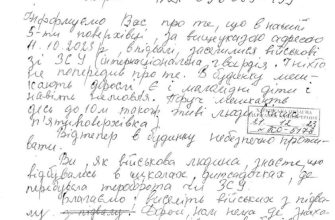 Інформуємо Вас про те, що в нашій
5-ти поверхівці за вищуказаною адресою
11.10.2023р в підвалі, заселилися військові
зі ЗСУ (інтернаціональна гвардія). Ніхто
не попередив про те. В будинку меш-
кають дорослі є і малолідні діти і
навіть немовля. Поруч мешкають
десь до 10м також живі люди також
п'ятиповерхівка.
Відтепер в будинку небезпечно прожи-
вати.
Ви, як військова людина знаєте що
відбувались в школах, дитсадочках, де
перебувала тероборона чи ЗСУ
Благаємо: виселіть військових з підва-
лу